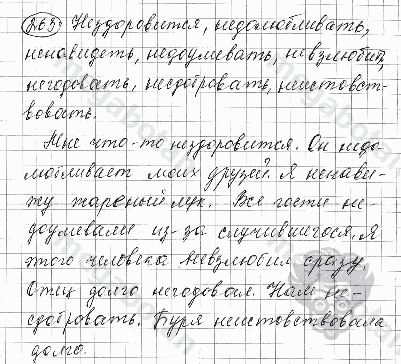 263) Нездоровится, недолюбливать,
ненавидеть, недоумевать, невзлюбил,
негодовать, несдобровать, неистовст-
вовать.
Мне что-то нездоровится. Он недо-
любливает моих друзей? Я ненави-
жу жареный лук. Все гости не-
доумевали из-за случившегося. Я
этого человека невзлюбил сразу.
Отец долго негодовал. Нам не-
сдобровать. Буря неистовствовала
долго.